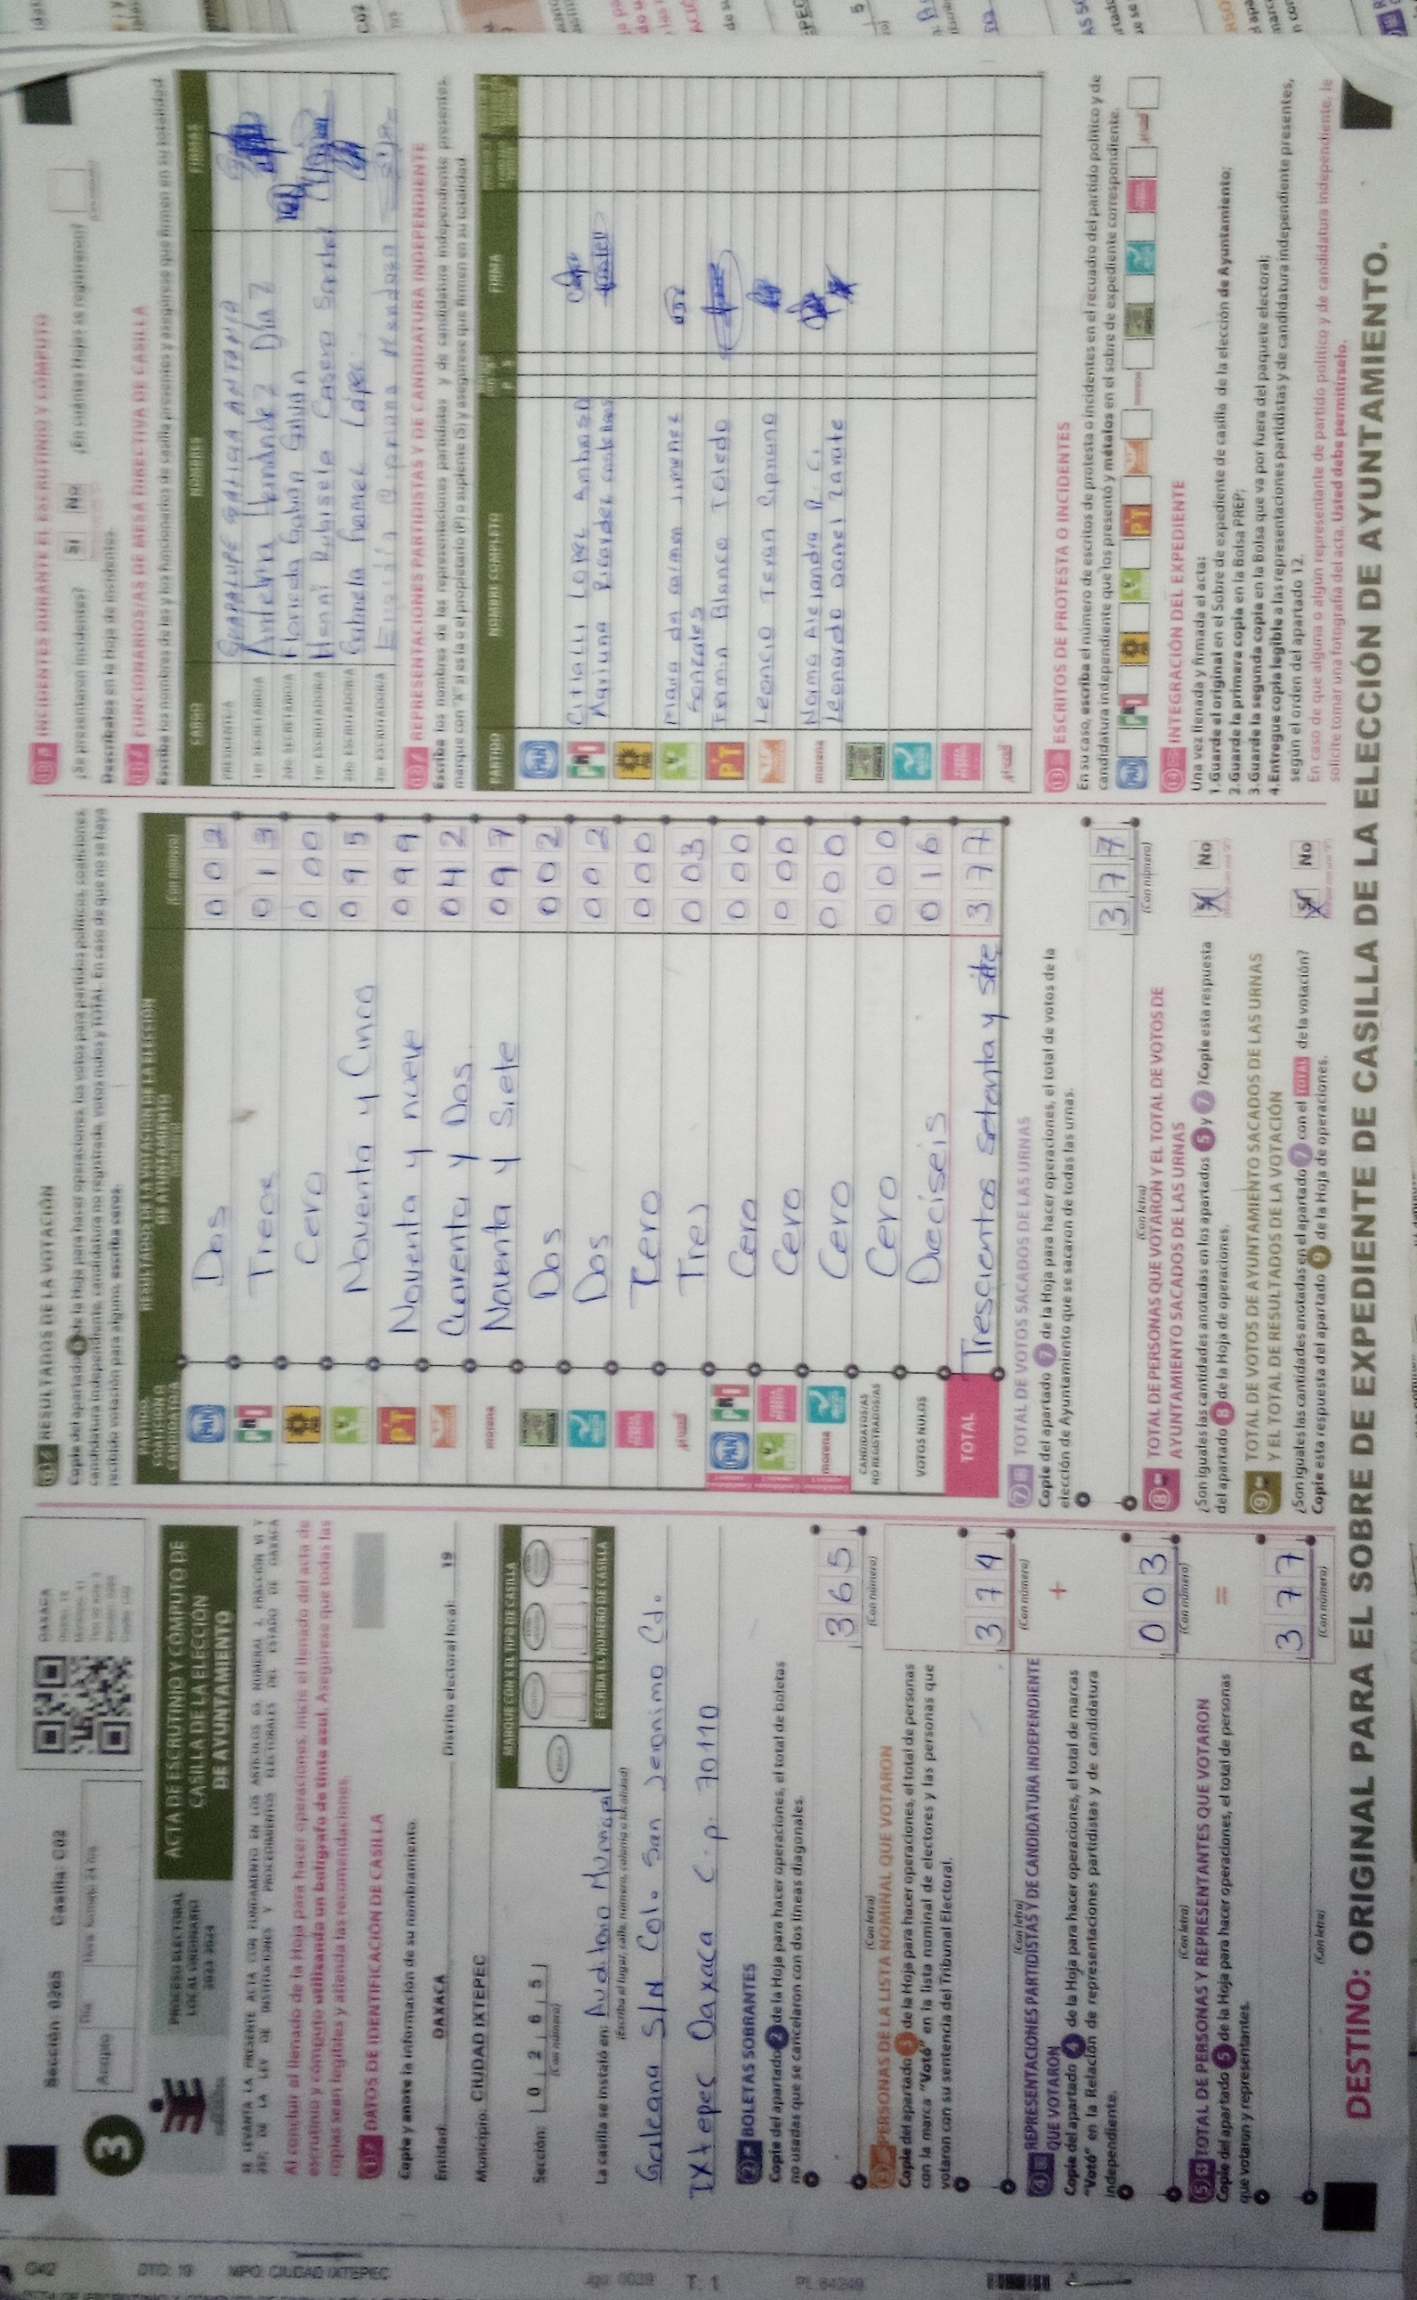 3
Sección: 0265 Casilla: C02
Acopio
Día
Hora
OAXACA
PROCESO ELECTORAL
LOCAL ORDINARIO
2023-2024
ACTA DE ESCRUTINIO Y CÓMPUTO DE
CASILLA DE LA ELECCIÓN
DE AYUNTAMIENTO
Al concluir el llenado de la Hoja para hacer operaciones, inicie el llenado del acta de
escrutinio y cómputo utilizando un bolígrafo de tinta azul. Asegúrese que todas las
copias sean legibles y atienda las recomendaciones.
1 DATOS DE IDENTIFICACIÓN DE CASILLA
Copie y anote la información de su nombramiento.
Entidad: OAXACA Distrito electoral local: 19
Municipio: CIUDAD IXTEPEC
Sección: 0 2 6 5
(Con número)
MARQUE CON X EL TIPO DE CASILLA
ESCRIBA EL NÚMERO DE CASILLA
La casilla se instaló en: Auditorio Municipal
(Escriba el lugar, calle, número, colonia o localidad)
Galeana S/N Colo San Jeronimo Cd.
Ixtepec Oaxaca C.p. 70110
2 BOLETAS SOBRANTES
Copie del apartado 2 de la Hoja para hacer operaciones, el total de boletas
no usadas que se cancelaron con dos líneas diagonales.
365
(Con letra) (Con número)
3 PERSONAS DE LA LISTA NOMINAL QUE VOTARON
Copie del apartado 3 de la Hoja para hacer operaciones, el total de personas
con la marca "Votó" en la lista nominal de electores y las personas que
votaron con su sentencia del Tribunal Electoral.
374
(Con letra) (Con número)
+
4 REPRESENTACIONES PARTIDISTAS Y DE CANDIDATURA INDEPENDIENTE
QUE VOTARON
Copie del apartado 4 de la Hoja para hacer operaciones, el total de marcas
"Votó" en la Relación de representaciones partidistas y de candidatura
independiente.
003
(Con letra) (Con número)
=
5 TOTAL DE PERSONAS Y REPRESENTANTES QUE VOTARON
Copie del apartado 5 de la Hoja para hacer operaciones, el total de personas
que votaron y representantes.
377
(Con letra) (Con número)
6 RESULTADOS DE LA VOTACIÓN
Copie del apartado 6 de la Hoja para hacer operaciones, los votos para partidos políticos, coaliciones,
candidatura independiente, candidatura no registrada, votos nulos y TOTAL. En caso de que no se haya
recibido votación para alguno, escriba ceros.
PARTIDO, COALICIÓN O CANDIDATURA
RESULTADOS DE LA VOTACIÓN DE LA ELECCIÓN
DE AYUNTAMIENTO
(Con número)
PAN Dos 002
PRI Trece 013
Cero 000
Noventa y Cinco 095
PT Noventa y nueve 099
Cuarenta y Dos 042
morena Noventa y Siete 097
Dos 002
Dos 002
Cero 000
Tres 003
PAN PRI Cero 000
Cero 000
morena Cero 000
CANDIDATOS/AS
NO REGISTRADOS/AS Cero 000
VOTOS NULOS Dieciseis 016
TOTAL Trescientos setenta y siete 377
7 TOTAL DE VOTOS SACADOS DE LAS URNAS
Copie del apartado 7 de la Hoja para hacer operaciones, el total de votos de la
elección de Ayuntamiento que se sacaron de todas las urnas.
377
(Con letra) (Con número)
8 TOTAL DE PERSONAS QUE VOTARON Y EL TOTAL DE VOTOS DE
AYUNTAMIENTO SACADOS DE LAS URNAS
¿Son iguales las cantidades anotadas en los apartados 5 y 7? Copie esta respuesta
del apartado 8 de la Hoja de operaciones.
Sí No
9 TOTAL DE VOTOS DE AYUNTAMIENTO SACADOS DE LAS URNAS
Y EL TOTAL DE RESULTADOS DE LA VOTACIÓN
¿Son iguales las cantidades anotadas en el apartado 7 con el TOTAL de la votación?
Copie esta respuesta del apartado 9 de la Hoja de operaciones.
Sí No
10 INCIDENTES DURANTE EL ESCRUTINIO Y CÓMPUTO
¿Se presentaron incidentes? Sí No ¿En cuántas Hojas se registraron?
Descríbalos en la Hoja de Incidentes.
11 FUNCIONARIOS/AS DE MESA DIRECTIVA DE CASILLA
Escriba los nombres de las y los funcionarios de casilla presentes y asegúrese que firmen en su totalidad
CARGO NOMBRES FIRMAS
PRESIDENTE/A GUADALUPE GALICIA ANTONIO
1er SECRETARIO/A Antelma Hernández Díaz
2do SECRETARIO/A Floricela Gabian Galvan
1er ESCRUTADOR/A Henni Rubisela Casero Sanchez
2do ESCRUTADOR/A Gabriela Gomez López
3er ESCRUTADOR/A
12 REPRESENTACIONES PARTIDISTAS Y DE CANDIDATURA INDEPENDIENTE
Escriba los nombres de las representaciones partidistas y de candidatura independiente presentes,
marque con "X" si es la o el propietario (P) o suplente (S) y asegúrese que firmen en su totalidad.
PARTIDO NOMBRE COMPLETO P S FIRMA
PAN
PRI Citlalli López Ambrosio
María del Carmen Jimenez
Gonzales
PT Fermin Blanco Toledo
Leoncio Teran Cipriano
morena Norma Alejandra R. C.
Leonardo Daniel Zarate
13 ESCRITOS DE PROTESTA O INCIDENTES
En su caso, escriba el número de escritos de protesta o incidentes en el recuadro del partido político y de
candidatura independiente que los presentó y métalos en el sobre de expediente correspondiente.
14 INTEGRACIÓN DEL EXPEDIENTE
Una vez llenada y firmada el acta:
1.Guarde el original en el Sobre de expediente de casilla de la elección de Ayuntamiento;
2.Guarde la primera copia en la Bolsa PREP;
3.Guarde la segunda copia en la Bolsa que va por fuera del paquete electoral;
4.Entregue copia legible a las representaciones partidistas y de candidatura independiente presentes,
según el orden del apartado 12.
En caso de que alguna o algún representante de partido político y de candidatura independiente, le
solicite tomar una fotografía del acta. Usted debe permitírselo.
DESTINO: ORIGINAL PARA EL SOBRE DE EXPEDIENTE DE CASILLA DE LA ELECCIÓN DE AYUNTAMIENTO.
DTO: 19 MPO: CIUDAD IXTEPEC
T: 1